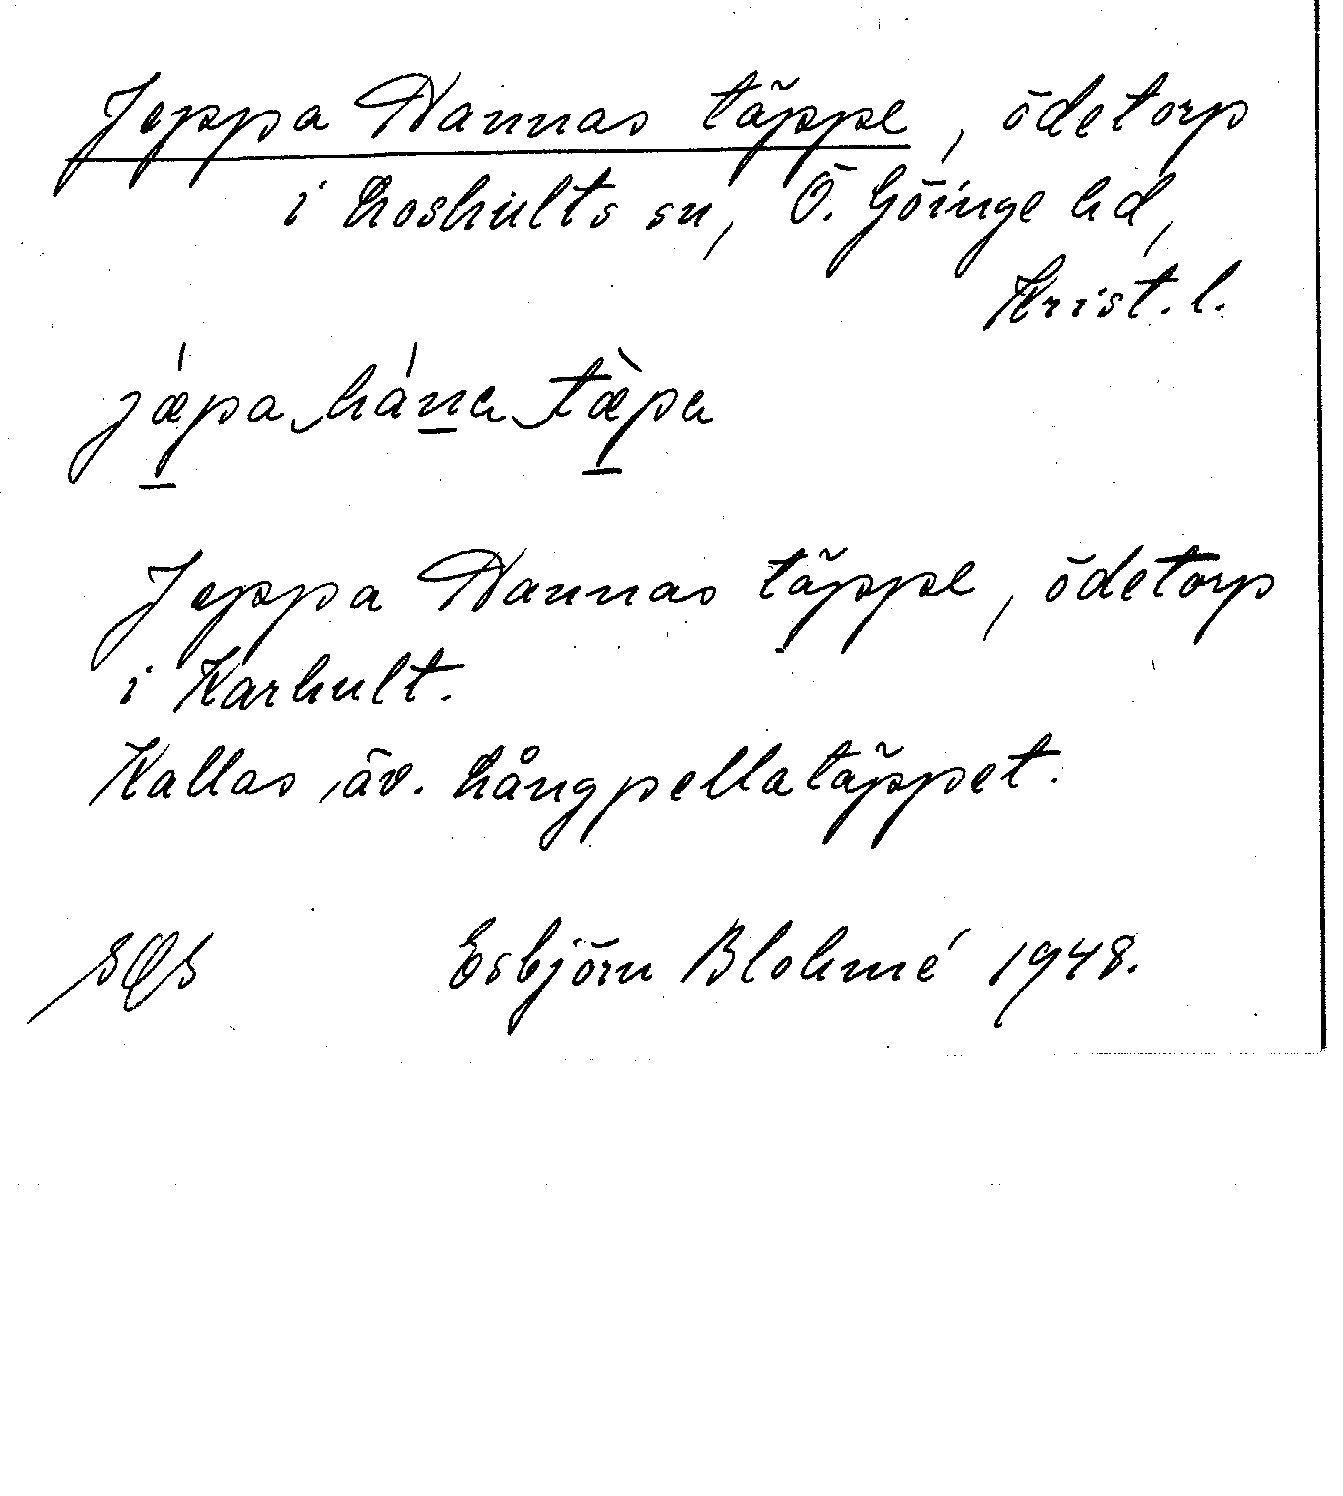 Jeppa Hannas täppe, ödetorp
i Loshults sn, Ö. Göinge hd,
Krist. l.
jæ̀pa hána tæ̀pa
Jeppa Hannas täppe, ödetorp
i Karhult.
Kallas äv. Långpellatäppet.
Esbjörn Blohmé 1948.